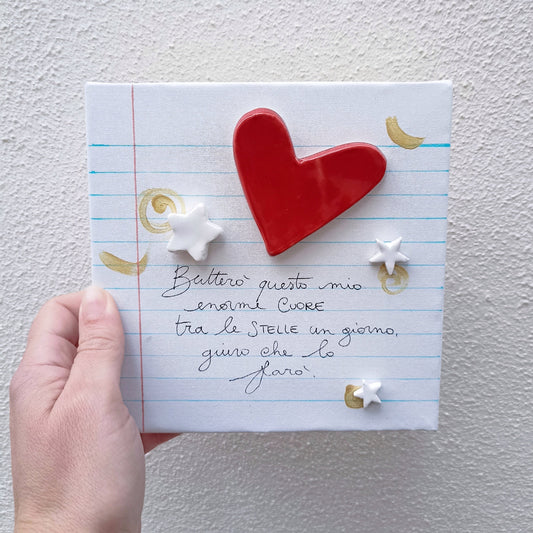 Butterò questo mio
enorme CUORE
tra le STELLE un giorno,
giuro che lo
farò.